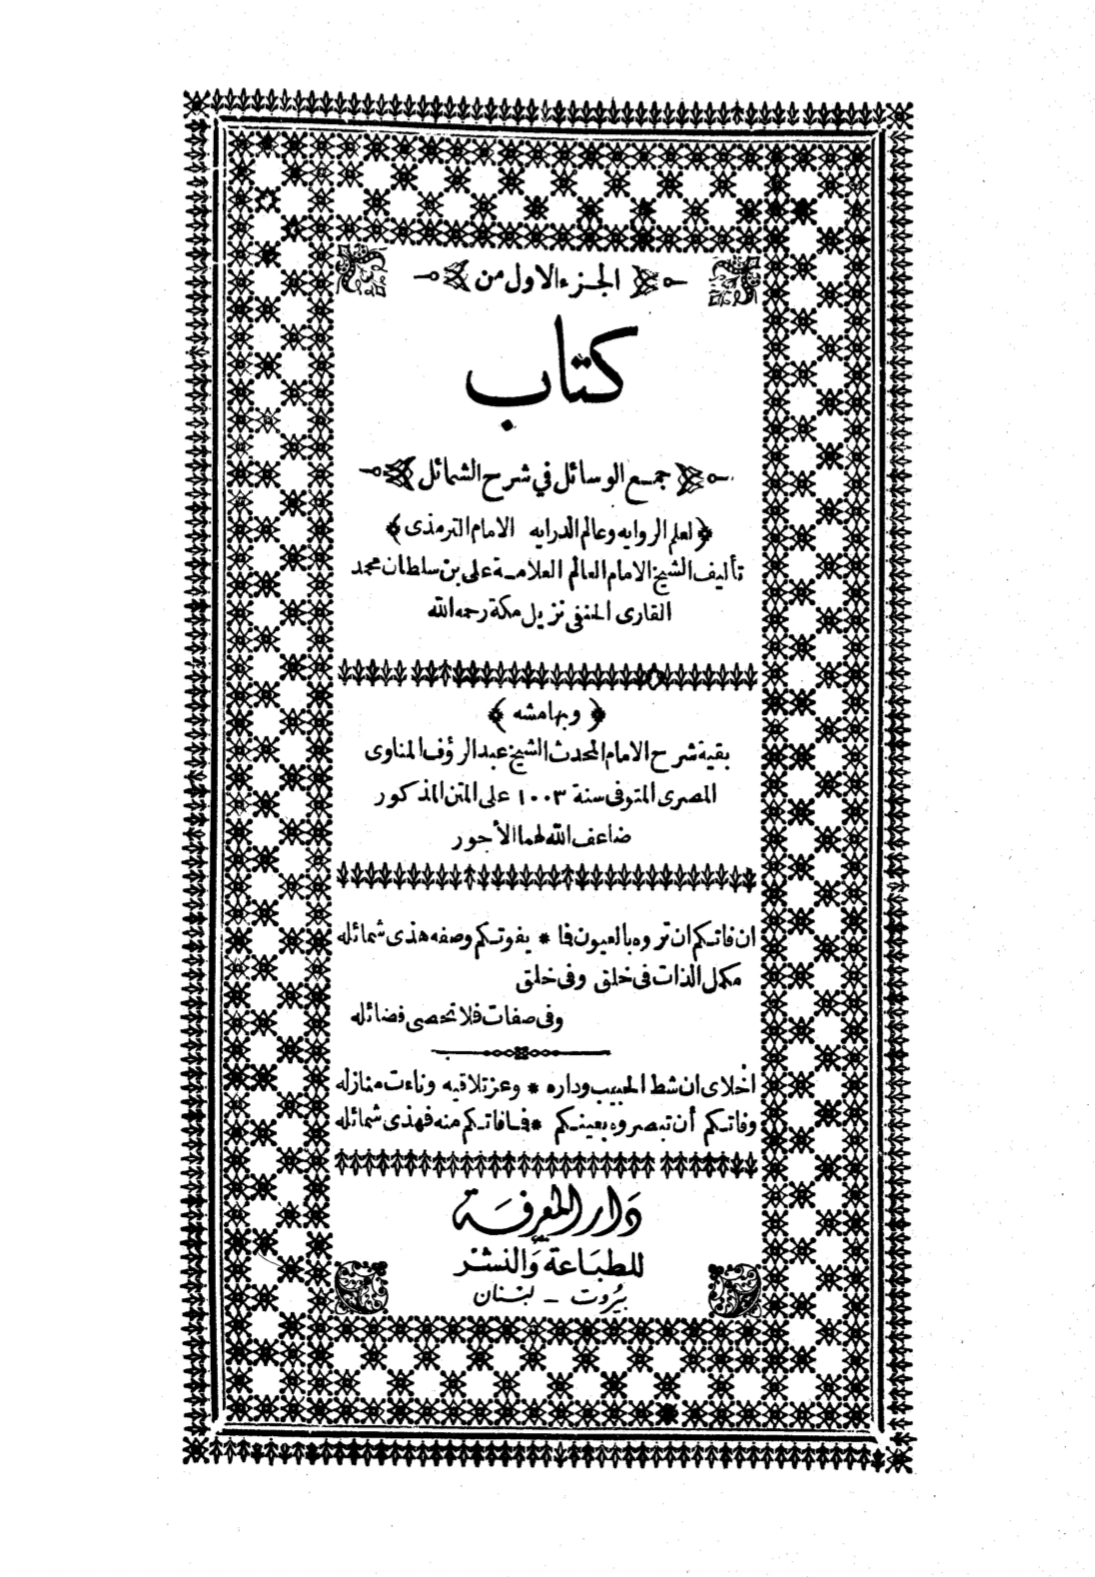 الجزء الاول من
كتاب
جمع الوسائل في شرح الشمائل
﴿لعلم الروايه وعالم الدرايه الامام الترمذى﴾
تأليف الشيخ الامام العالم العلامة على بن سلطان محمد
القارى الحنفى نزيل مكة رحمه الله
﴿ وبهامشه ﴾
بقية شرح الامام المحدث الشيخ عبد الرؤف المناوى
المصرى المتوفى سنة ١٠٠٣ على المتن المذكور
ضاعف الله لهما الأجور
ان فاتكم ان تروه بالعيون فا * يفوتكم وصفه هذى شمائله
مكمل الذات فى خلق وفى خلق
وفى صفات فلا تحصى فضائله
اخلاى ان شط الحبيب وداره * وعز تلاقيه وناءت منازله
وفاتكم أن تبصروه بعينكم * فافاتكم منه فهذى شمائله
دَار المَعرفَة
للطبَاعَة وَالنشْر
بيُروت - لبْنان